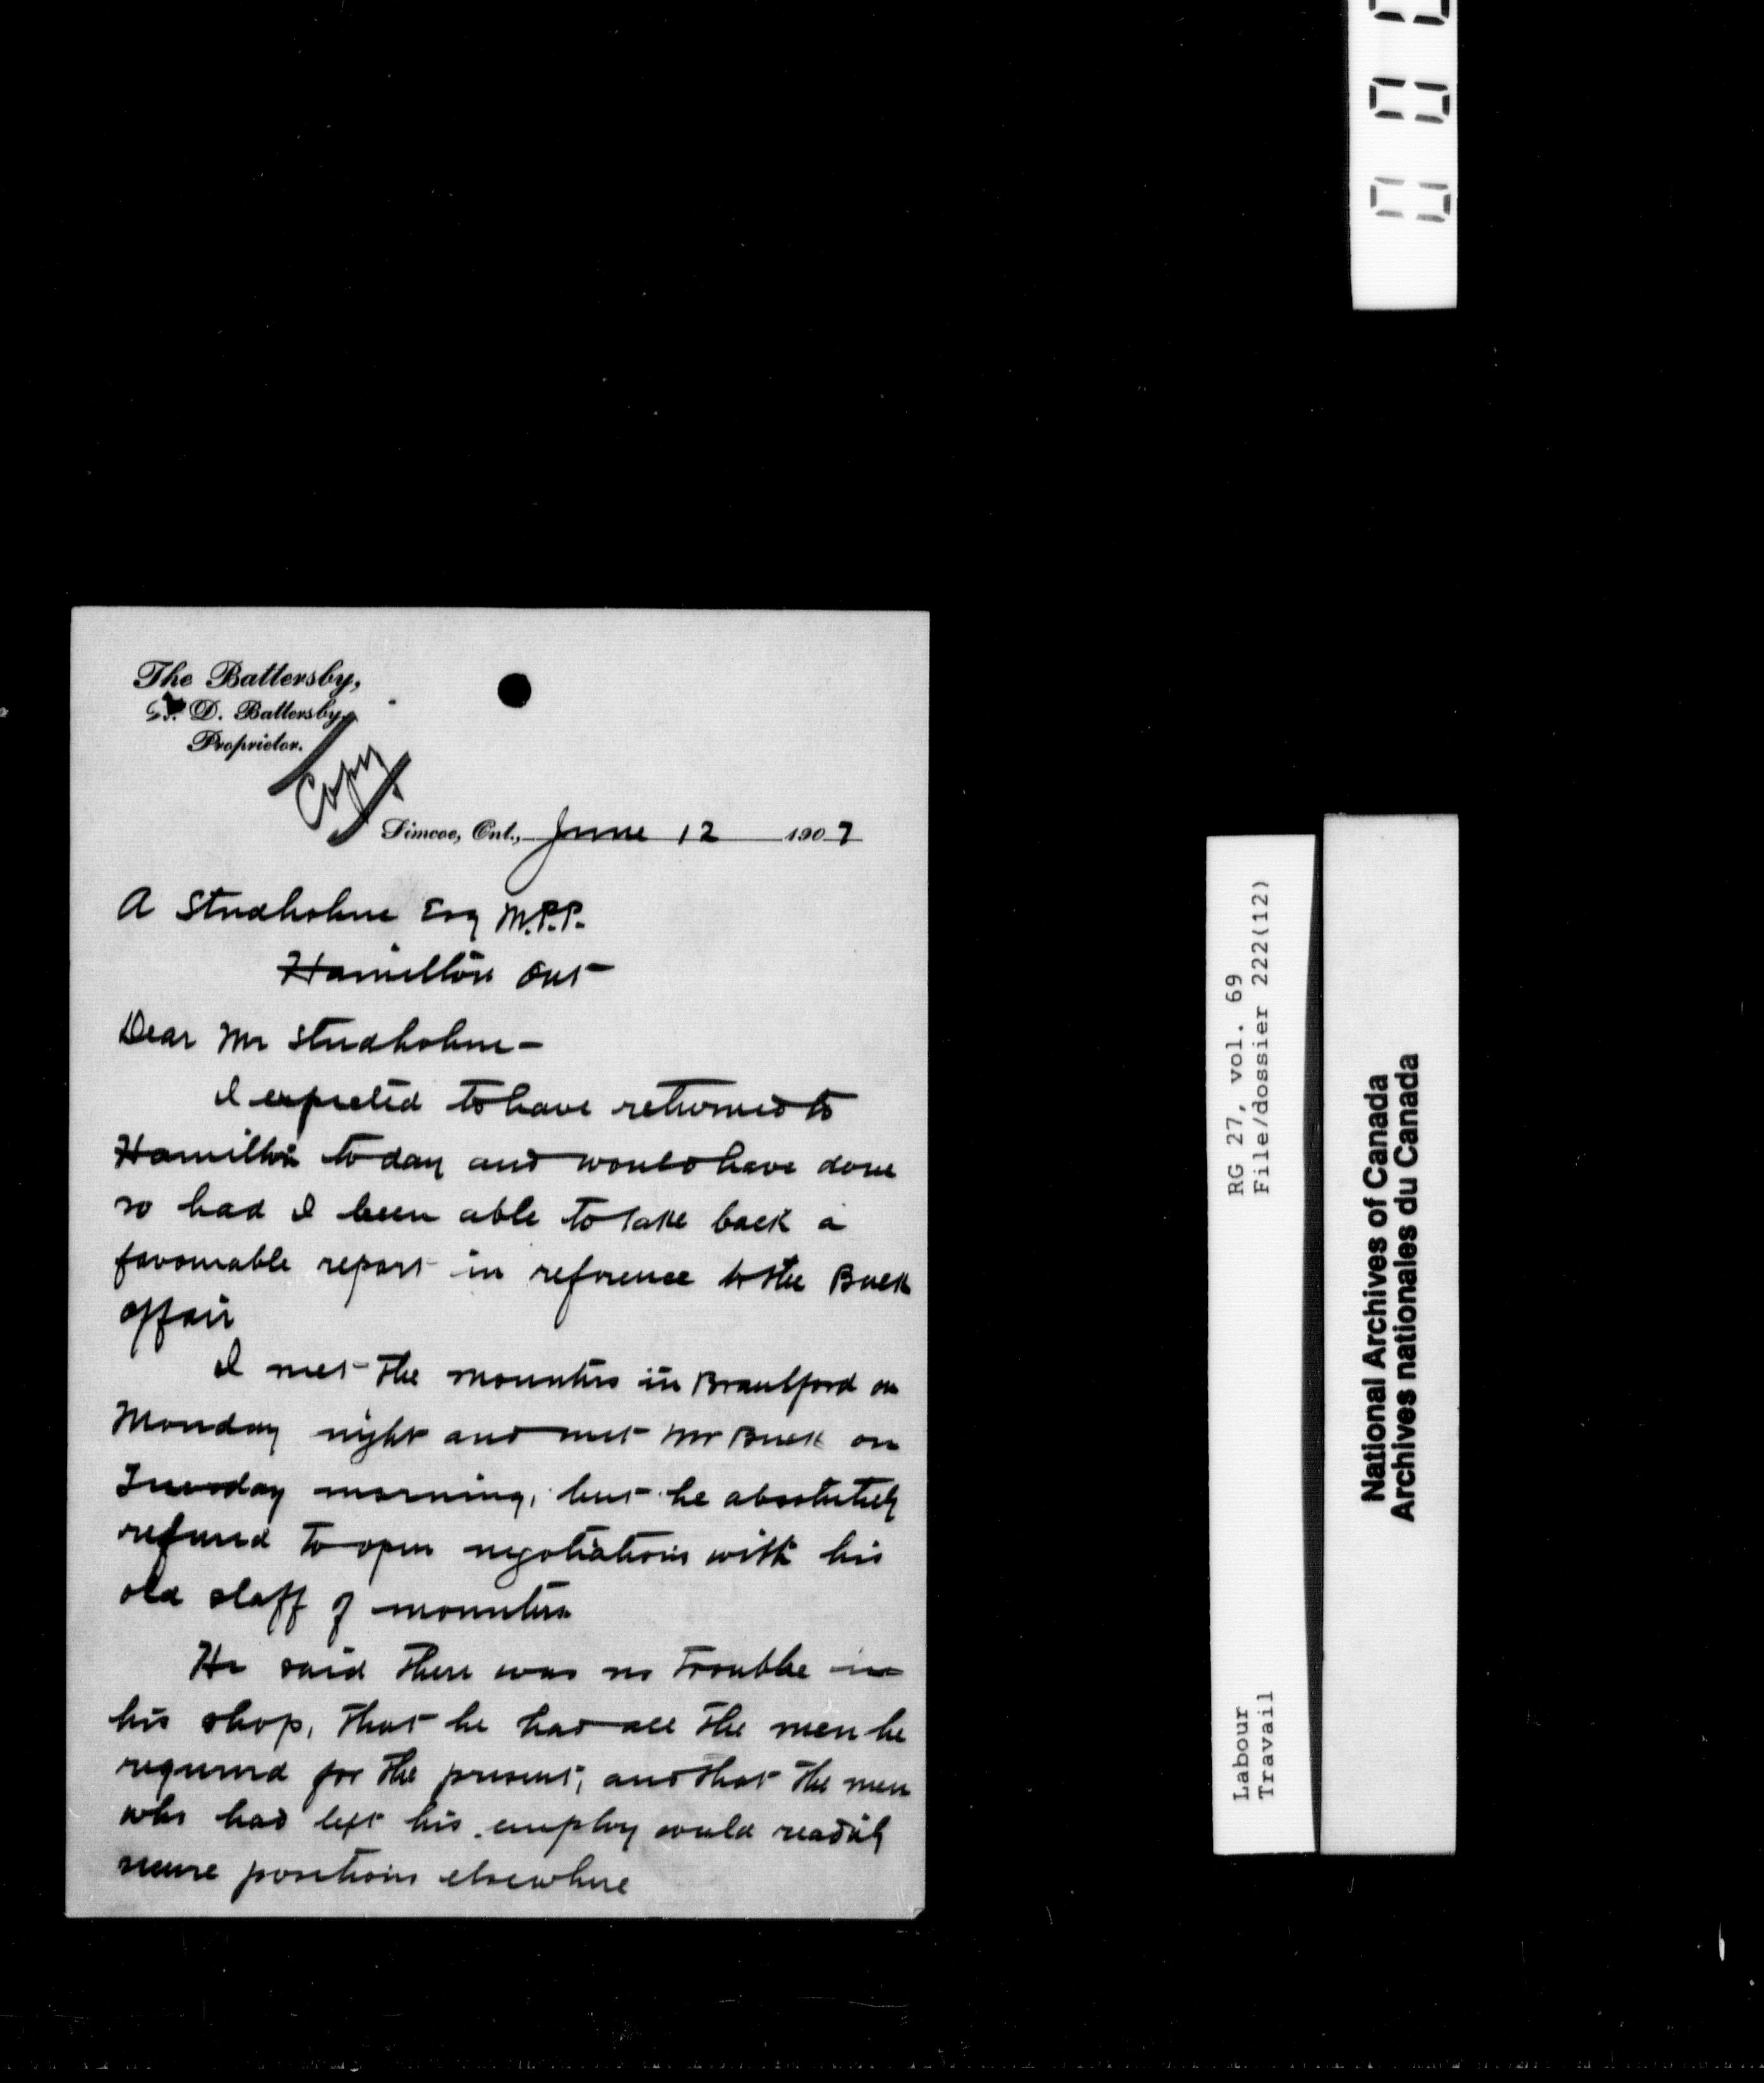 The Battersby,
D. Battersby,
Proprietor.
Copy
Simcoe, Ont., June 12 1907
A Studholme Esq M.P.P.
Hamilton Ont
Dear Mr Studholme-
I expected to have returned to
Hamilton to day and would have done
so had I been able to take back a
favourable report in reference to the Buck
affair
I met the mounters in Brantford on
Monday night and met Mr Buck on
Tuesday morning, but he absolutely
refused to open negotiations with his
old staff of mounters
He said there was no trouble in
his shop, that he had all the men he
required for the present, and that the men
who had left his employ could readily
secure positions elsewhere
RG 27, vol. 69
File/dossier 222(12)
Labour
Travail
National Archives of Canada
Archives nationales du Canada